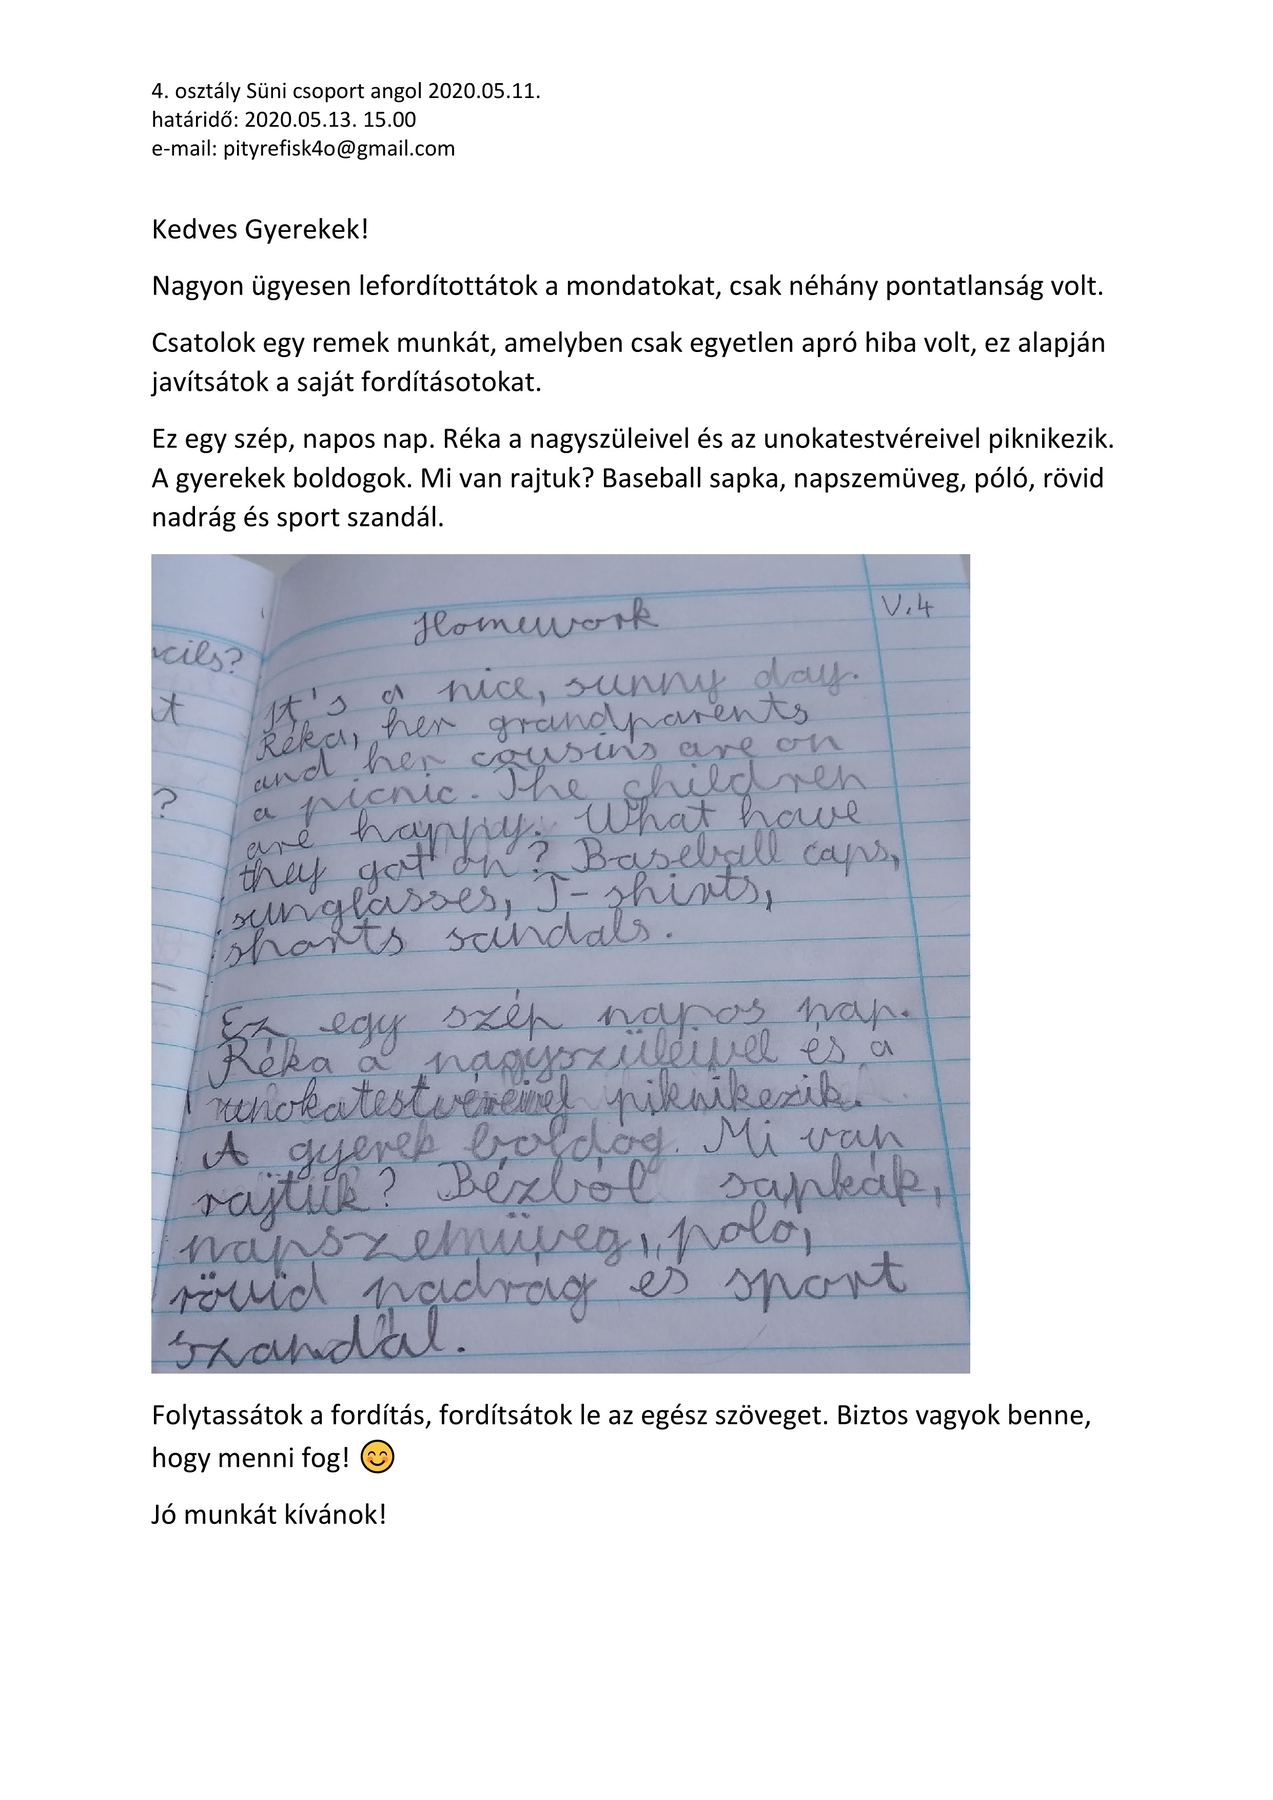 4. osztály Süni csoport angol 2020.05.11.
határidő: 2020.05.13. 15.00
e-mail: pityrefisk4o@gmail.com
Kedves Gyerekek!
Nagyon ügyesen lefordítottátok a mondatokat, csak néhány pontatlanság volt.
Csatolok egy remek munkát, amelyben csak egyetlen apró hiba volt, ez alapján
javítsátok a saját fordításotokat.
Ez egy szép, napos nap. Réka a nagyszüleivel és az unokatestvéreivel piknikezik.
A gyerekek boldogok. Mi van rajtuk? Baseball sapka, napszemüveg, póló, rövid
nadrág és sport szandál.
Homework V.4
It's a nice, sunny day.
Réka, her grandparents
and her cousins are on
a picnic. The children
are happy. What have
they got on? Baseball caps,
sunglasses, T-shirts,
shorts sandals.
Ez egy szép napos nap.
Réka a nagyszüleivel és a
unokatestvéreivel piknikezik.
A gyerek boldog. Mi van
rajtuk? Bézból sapkák,
napszemüveg, poló,
rövid nadrág es sport
szandál.
?
t
?
Folytassátok a fordítás, fordítsátok le az egész szöveget. Biztos vagyok benne,
hogy menni fog! 😊
Jó munkát kívánok!